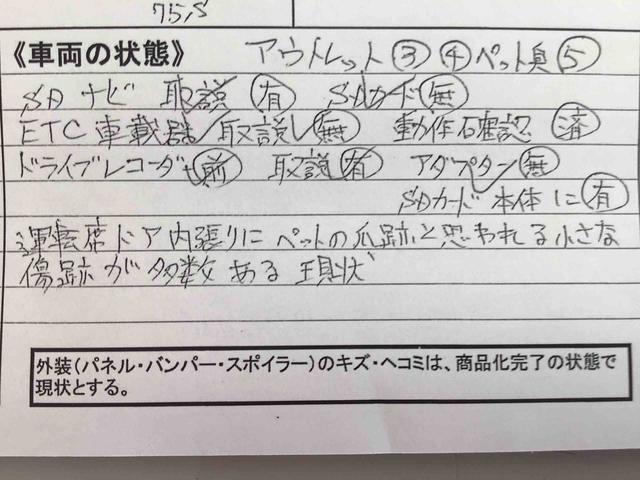 75,5
《車両の状態》 アウトレット③④ペット臭⑤
SDナビ 取説㊒ SDカード㊁無
ETC車載器 取説無 動作確認済
ドライブレコーダー前 取説有 アダプター無
SDカード本体に有
運転席ドア内張りにペットの爪跡と思われる小さな
傷跡が多数ある現状
外装(パネル・バンパー・スポイラー)のキズ・ヘコミは、商品化完了の状態で
現状とする。